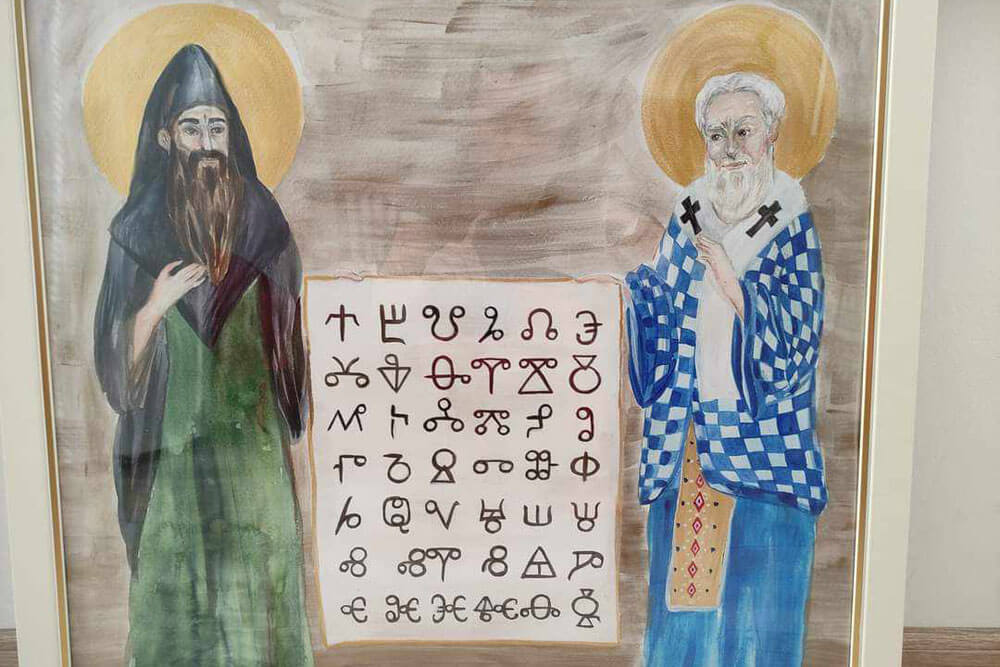 Ⰰ Ⰱ Ⰲ Ⰳ Ⰴ Ⰵ
Ⰶ Ⰷ Ⰸ Ⰺ Ⰻ Ⰹ
Ⰼ Ⰽ Ⰾ Ⰿ Ⱀ Ⱁ
Ⱂ Ⱃ Ⱄ Ⱅ Ⱆ Ⱇ
Ⱈ Ⱉ Ⱌ Ⱍ Ⱎ Ⱋ
Ⱏ ⰟⰊ Ⱐ Ⱑ Ⱓ
Ⱔ Ⱘ Ⱗ Ⱙ Ⱚ Ⱛ